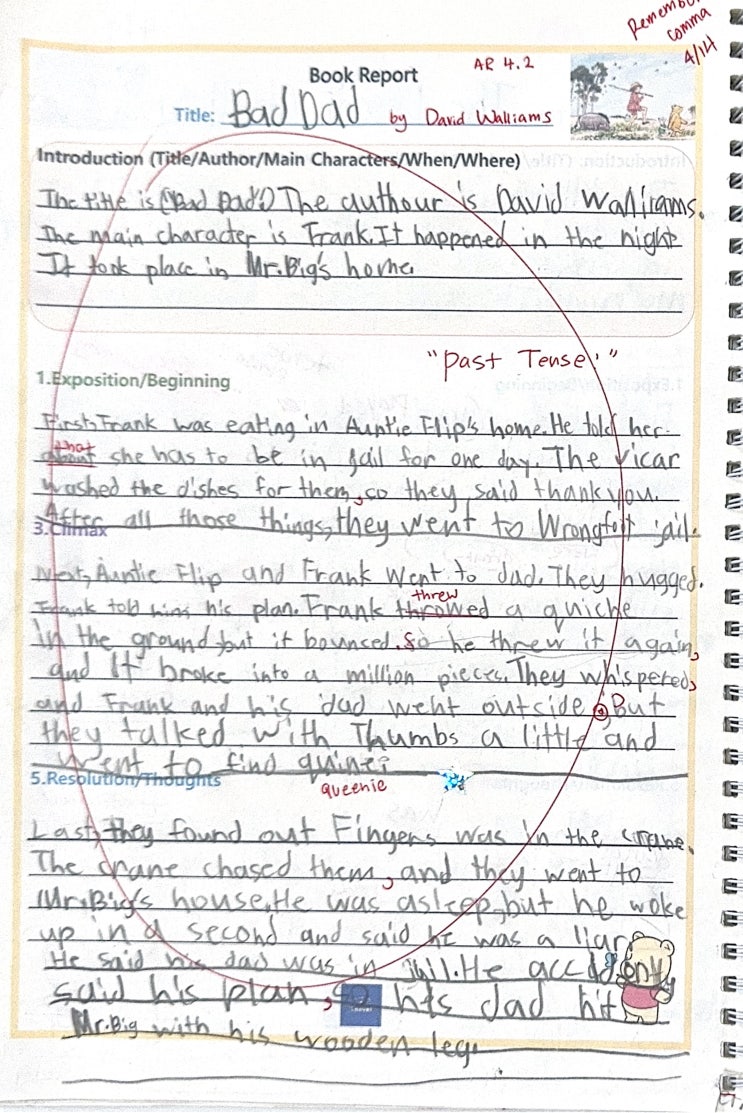 Remember
comma
4/14
Book Report
AR 4.2
Title: Bad Dad by David Walliams
Introduction (Title/Author/Main Characters/When/Where)
The title is ("Bad Dad".) The authour is David Walliams.
The main character is Frank. It happened in the night
It took place in Mr.Big's home.
"Past Tense!"
1.Exposition/Beginning
First, Frank was eating in Auntie Flip's home. He told her
that
about she has to be in jail for one day. The vicar
washed the dishes for them, so they said thank you.
After all those things, they went to Wrongfoot jail.
3.Climax
Next, Auntie Flip and Frank went to dad. They hugged.
threw
Frank told him his plan. Frank throwed a quiche
in the ground, but it bounced. So he threw it again,
and it broke into a million pieces. They whispered,
and Frank and his dad went outside. But
they talked with Thumbs a little and
went to find
queenie
5.Resolution/Thoughts
Last, they found out Fingers was in the crane.
The crane chased them, and they went to
Mr.Big's house. He was asleep, but he woke
up in a second and said he was a liar.
He said his dad was in jail. He
said his plan, so his dad hit
Mr.Big with his wooden leg.